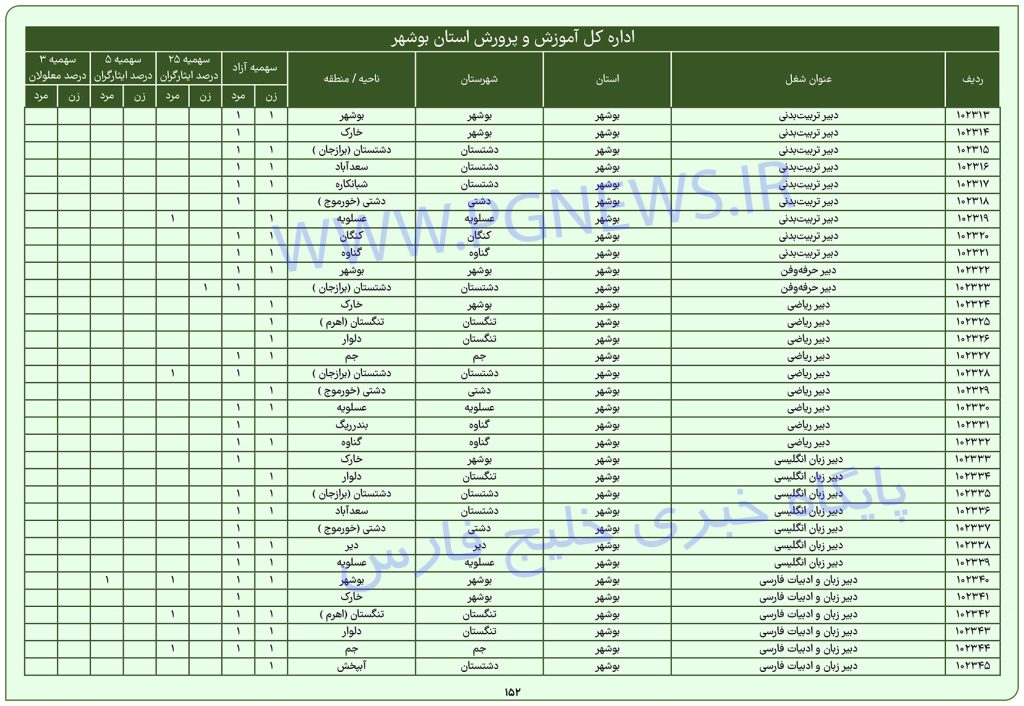 اداره کل آموزش و پرورش استان بوشهر
ردیف عنوان شغل استان شهرستان ناحیه / منطقه سهمیه آزاد سهمیه ۲۵ درصد ایثارگران سهمیه ۵ درصد ایثارگران سهمیه ۳ درصد معلولان
زن مرد زن مرد زن مرد زن مرد
۱۰۲۳۱۳ دبیر تربیت‌بدنی بوشهر بوشهر بوشهر ۱ ۱
۱۰۲۳۱۴ دبیر تربیت‌بدنی بوشهر بوشهر خارک ۱
۱۰۲۳۱۵ دبیر تربیت‌بدنی بوشهر دشتستان دشتستان (برازجان ) ۱ ۱
۱۰۲۳۱۶ دبیر تربیت‌بدنی بوشهر دشتستان سعدآباد ۱ ۱
۱۰۲۳۱۷ دبیر تربیت‌بدنی بوشهر دشتستان شبانکاره ۱ ۱
۱۰۲۳۱۸ دبیر تربیت‌بدنی بوشهر دشتی دشتی (خورموج ) ۱
۱۰۲۳۱۹ دبیر تربیت‌بدنی بوشهر عسلویه عسلویه ۱ ۱
۱۰۲۳۲۰ دبیر تربیت‌بدنی بوشهر کنگان کنگان ۱ ۱
۱۰۲۳۲۱ دبیر تربیت‌بدنی بوشهر گناوه گناوه ۱ ۱
۱۰۲۳۲۲ دبیر حرفه‌وفن بوشهر بوشهر بوشهر ۱ ۱
۱۰۲۳۲۳ دبیر حرفه‌وفن بوشهر دشتستان دشتستان (برازجان ) ۱ ۱
۱۰۲۳۲۴ دبیر ریاضی بوشهر بوشهر خارک ۱
۱۰۲۳۲۵ دبیر ریاضی بوشهر تنگستان تنگستان (اهرم ) ۱
۱۰۲۳۲۶ دبیر ریاضی بوشهر تنگستان دلوار ۱
۱۰۲۳۲۷ دبیر ریاضی بوشهر جم جم ۱ ۱
۱۰۲۳۲۸ دبیر ریاضی بوشهر دشتستان دشتستان (برازجان ) ۱ ۱
۱۰۲۳۲۹ دبیر ریاضی بوشهر دشتی دشتی (خورموج ) ۱
۱۰۲۳۳۰ دبیر ریاضی بوشهر عسلویه عسلویه ۱ ۱
۱۰۲۳۳۱ دبیر ریاضی بوشهر گناوه بندرریگ ۱
۱۰۲۳۳۲ دبیر ریاضی بوشهر گناوه گناوه ۱ ۱
۱۰۲۳۳۳ دبیر زبان انگلیسی بوشهر بوشهر خارک ۱
۱۰۲۳۳۴ دبیر زبان انگلیسی بوشهر تنگستان دلوار ۱
۱۰۲۳۳۵ دبیر زبان انگلیسی بوشهر دشتستان دشتستان (برازجان ) ۱ ۱
۱۰۲۳۳۶ دبیر زبان انگلیسی بوشهر دشتستان سعدآباد ۱ ۱
۱۰۲۳۳۷ دبیر زبان انگلیسی بوشهر دشتی دشتی (خورموج ) ۱
۱۰۲۳۳۸ دبیر زبان انگلیسی بوشهر دیر دیر ۱ ۱
۱۰۲۳۳۹ دبیر زبان انگلیسی بوشهر عسلویه عسلویه ۱ ۱
۱۰۲۳۴۰ دبیر زبان و ادبیات فارسی بوشهر بوشهر بوشهر ۱ ۱ ۱ ۱
۱۰۲۳۴۱ دبیر زبان و ادبیات فارسی بوشهر بوشهر خارک ۱
۱۰۲۳۴۲ دبیر زبان و ادبیات فارسی بوشهر تنگستان تنگستان (اهرم ) ۱ ۱ ۱
۱۰۲۳۴۳ دبیر زبان و ادبیات فارسی بوشهر تنگستان دلوار ۱ ۱
۱۰۲۳۴۴ دبیر زبان و ادبیات فارسی بوشهر جم جم ۱ ۱ ۱
۱۰۲۳۴۵ دبیر زبان و ادبیات فارسی بوشهر دشتستان آبپخش ۱
WWW.PGNEWS.IR
پایگاه خبری خلیج فارس
۱۵۲